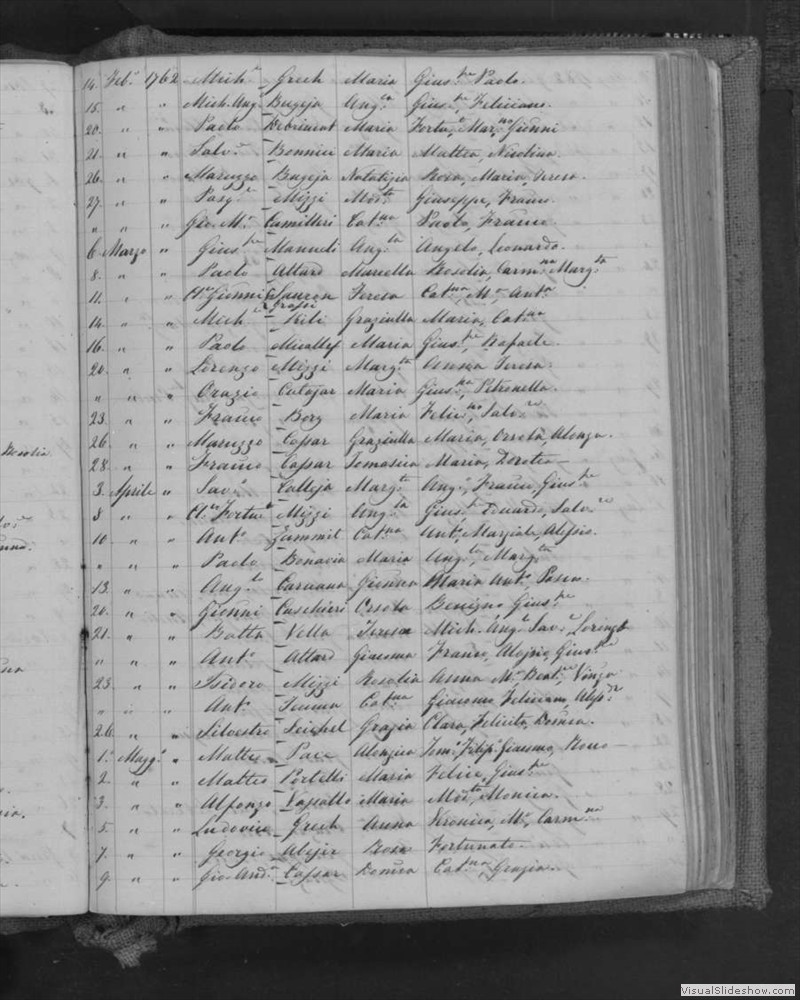 14. Feb.o 1762 Mich.e Grech Maria Gius.pe Paolo.
15. " " Mich. Ang.o Bugeja Ang.ca Gius.pe Feliciano.
20. " " Paolo Maria Fortu.o Mar.na Gionni
21. " " Salv.e Bonnici Maria Mattea, Nicolina.
26. " " Maruzzo Bugeja Natalizia Rosa, Maria, Teresa.
27. " " Pasq.e Mizzi Mod.ta Giuseppe, Franco.
" " " Gio. M.a Camilleri Cat.na Paolo, Franco.
6. Marzo " Gius.pe Manueli Ang.la Angelo, Leonardo.
8. " " Paolo Attard Marietta Rosolia, Carm.na Marg.ta
11. " " Cl.o Gionni Teresa Cat.na, M.a Ant.a
Grassi
14. " " Mich.e Kili Graziulla Maria, Cat.na
16. " " Paolo Micallef Maria Gius.pe, Rafaele.
20. " " Lorenzo Mizzi Marg.ta Anna Teresa.
" " " Orazio Cutajar Maria Gius.pa, Petronella.
23. " " Franco Borg Maria Felic.na, Salv.re
26. " " Maruzzo Cassar Graziulla Maria, Orsola, Alonza.
28. " " Franco Cassar Tomasica Maria, Dorotea —
3. Aprile " Sav.o Calleja Marg.ta Ang.o, Franco, Gius.pe
8 " " Cl.o Fortu.to Mizzi Ang.la Gius.pe Eduardo, Salv.re
10. " " Ant.o Zammit Cat.na Ant.o, Marziale, Alessio.
" " " Paolo Bonavia Maria Ang.la, Marg.ta
13. " " Aug.to Caruana Gionna Maria Ant.a Pasca.
20. " " Gionni Caschieri Orsola Benigno Gius.pe
21. " " Batta Vella Teresa Mich. Ang.o Sav.o Lorenzo
" " " Ant.o Attard Giacoma Franco, Aloisio, Gius.pe
23. " " Isidoro Mizzi Rosolia Anna M.a Beat.ce Vinza
" " " Ant.o Cat.na Giacomo, Feliciano,
26. " " Silvestro Seichel Grazia Clara, Felicita, Domca.
1.o Magg.o " Matteo Pace Alonzica Tom.o Filip.o Giacomo, Rosa —
2. " " Matteo Portelli Maria Felice, Gius.pe
3. " " Alfonzo Vassallo Maria Mod.ta, Monica.
5. " " Ludovico Grech Anna Veronica, M.a, Carm.na
7. " " Georgio Abejer Rosa Fortunato.
9. " " Gio. And.a Cassar Domca Cat.na, Grazia.
Rosolia
VisualSlideshow.com